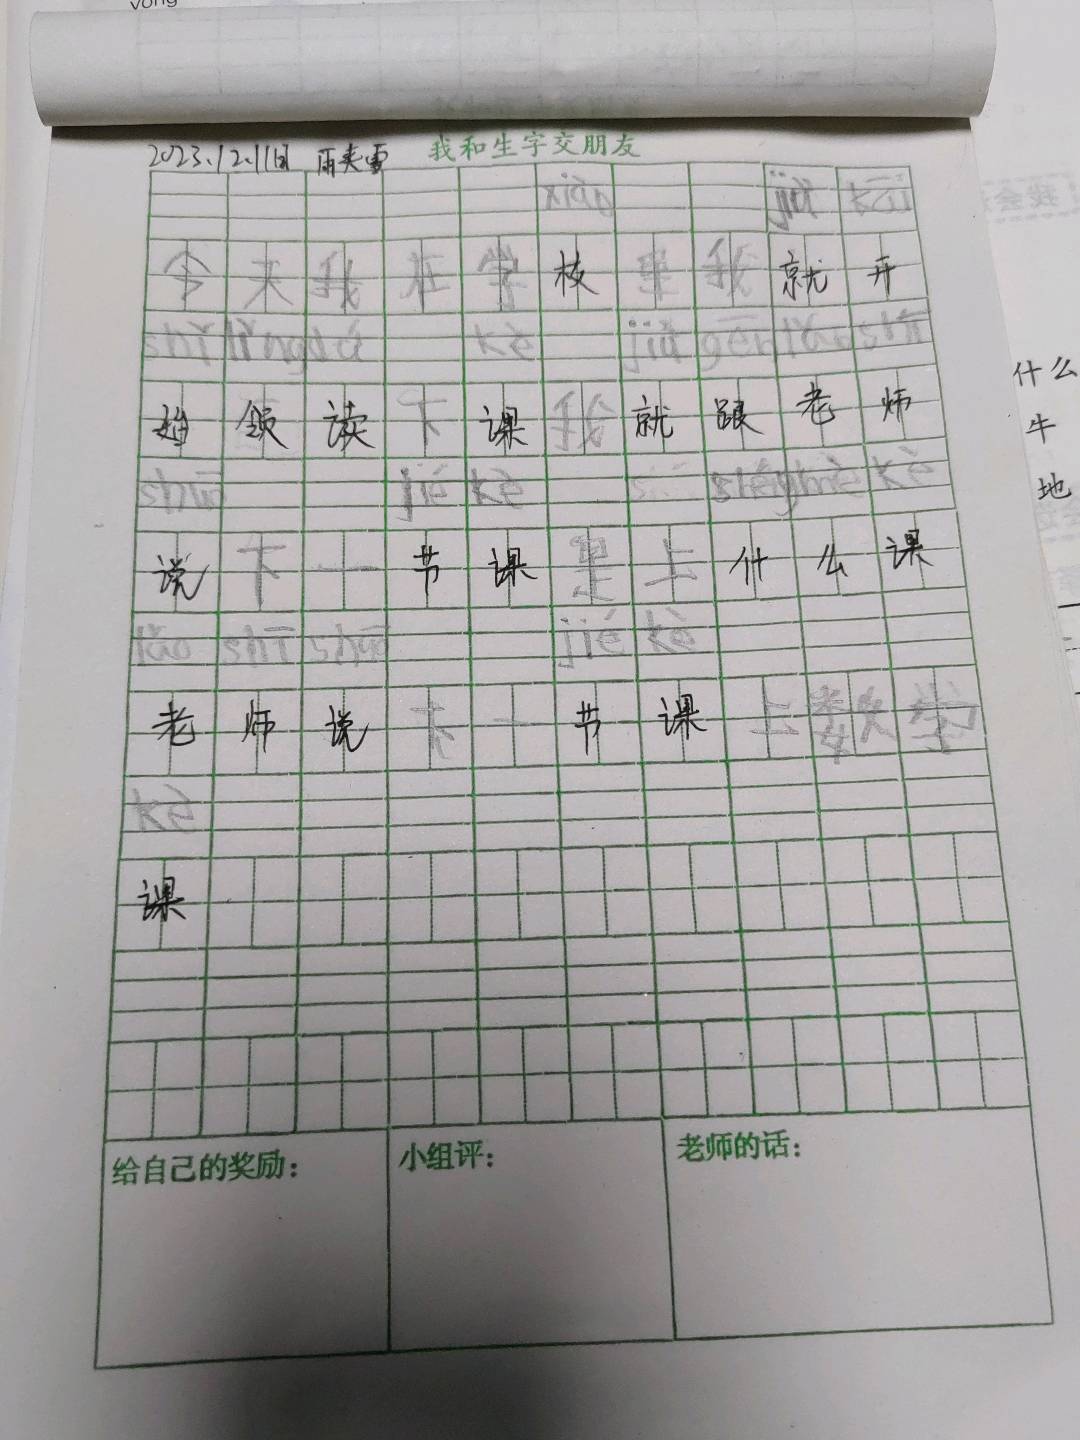 yong
我和生字交朋友
2023.12.11日 雨夹雪
今天我在学校里我就开
shǐ lǐng dú kè jiù gēn lǎo shī
始领读下课我就跟老师
shuō jié kè kè
说下一节课里上什么课
lǎo shī shuō jié kè
老师说下一节课上数学
kè
课
给自己的奖励：
小组评：
老师的话：
什么
牛
地
我会